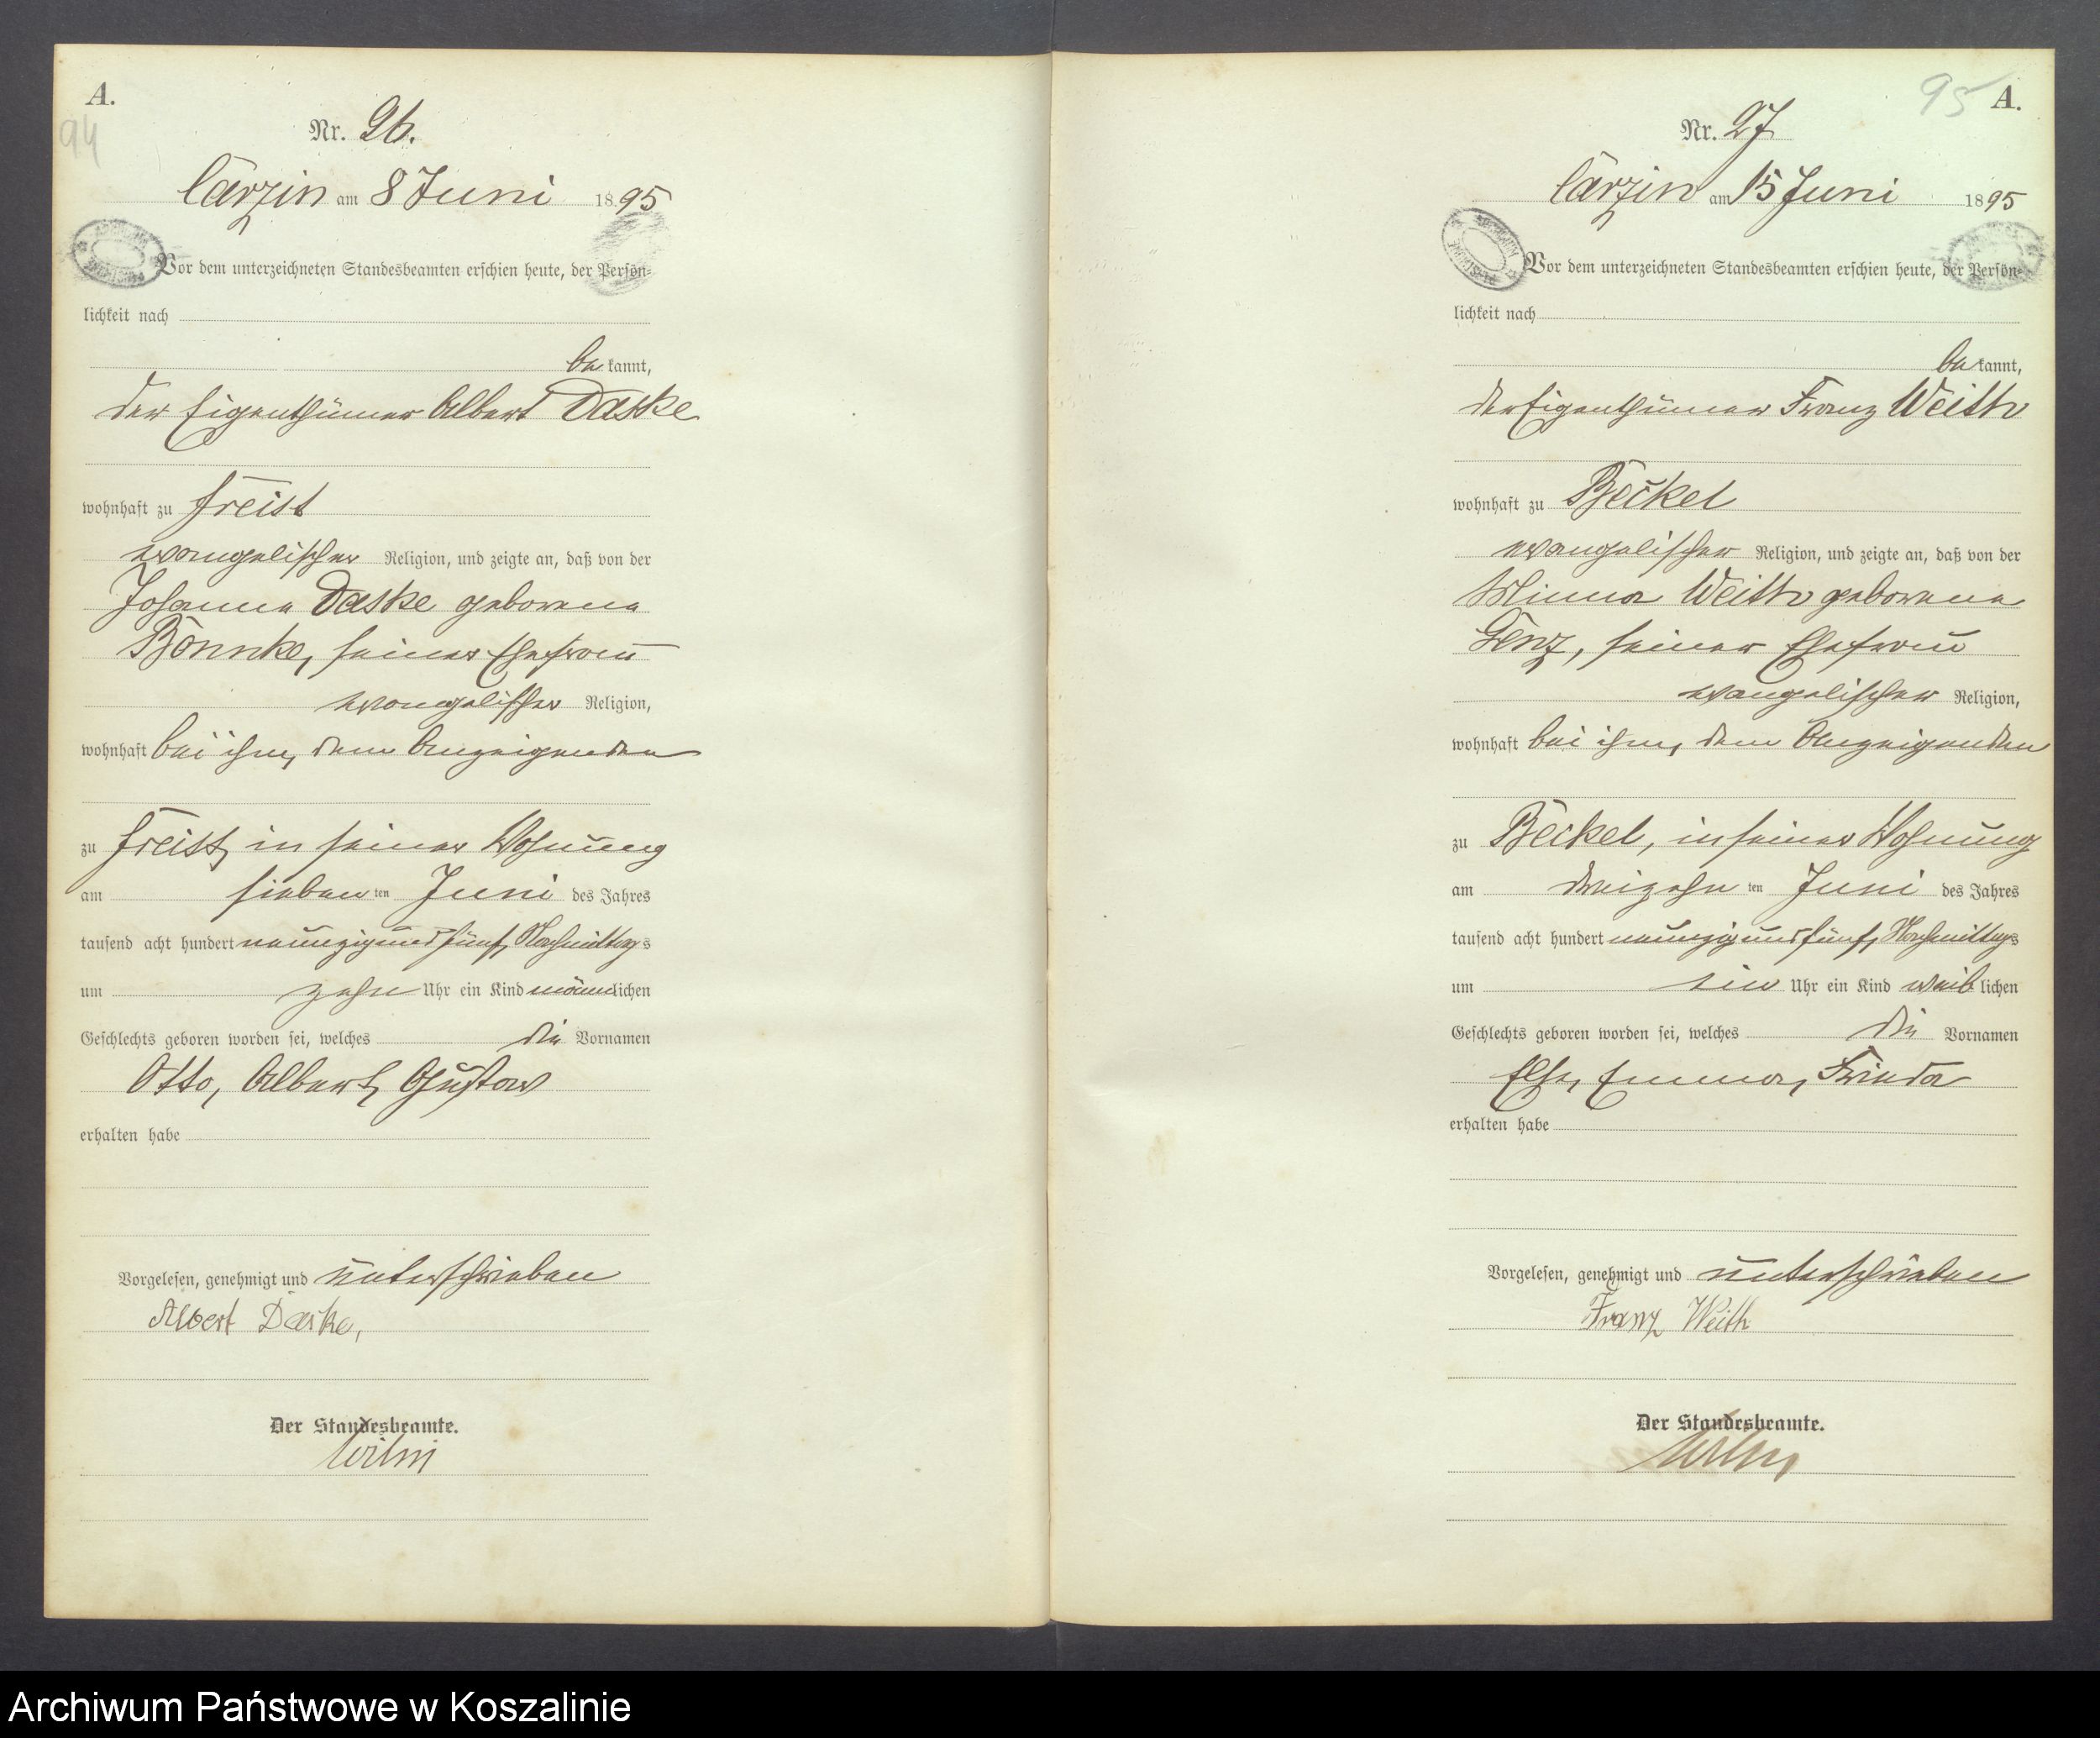 A.
94
Nr. 26.
Carzin am 8 Juni 1895
Vor dem unterzeichneten Standesbeamten erschien heute, der Persön-
lichkeit nach
be kannt,
der Eigenthümer Albert Daske
wohnhaft zu Freist
evangelischer Religion, und zeigte an, daß von der
Johanna Daske geborene
Bonnke, seiner Ehefrau
evangelischer Religion,
wohnhaft bei ihm, dem Anzeigenden
zu Freist, in seiner Wohnung
am sieben ten Juni des Jahres
tausend acht hundert neunzig und fünf, Nachmittags
um zehn Uhr ein Kind männlichen
Geschlechts geboren worden sei, welches die Vornamen
Otto, Albert, Gustav
erhalten habe
Vorgelesen, genehmigt und unterschrieben
Albert Daske,
Der Standesbeamte.
95
A.
Nr. 27
Carzin am 15 Juni 1895
Vor dem unterzeichneten Standesbeamten erschien heute, der Persön-
lichkeit nach
be kannt,
der Eigenthümer Franz Weith
wohnhaft zu Beckel
evangelischer Religion, und zeigte an, daß von der
Minna Weith geborene
Genz, seiner Ehefrau
evangelischer Religion,
wohnhaft bei ihm, dem Anzeigenden
zu Beckel, in seiner Wohnung
am dreizehn ten Juni des Jahres
tausend acht hundert neunzig und fünf, Nachmittags
um ein Uhr ein Kind weib lichen
Geschlechts geboren worden sei, welches die Vornamen
Else, Emma, Frieda
erhalten habe
Vorgelesen, genehmigt und unterschrieben
Franz Weith
Der Standesbeamte.
Archiwum Państwowe w Koszalinie